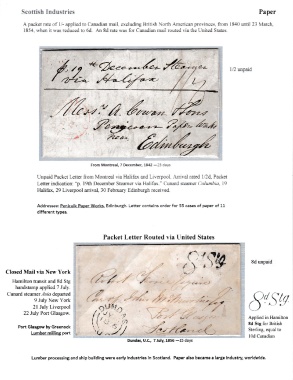 Scottish Industries
Paper
A packet rate of 1/- applied to Canadian mail, excluding British North American provinces, from 1840 until 23 March,
1854, when it was reduced to 8d. An 8d rate was for Canadian mail routed via the United States.
p. 19th December Steamer
via Halifax
1/2 unpaid
Messrs A. Cowan & Sons
Paper
near
Edinburgh
From Montreal, 7 December, 1842 - 23 days
Unpaid Packet Letter from Montreal via Halifax and Liverpool. Arrival rated 1/2d, Packet
Letter indication: "p. 19th December Steamer via Halifax." Cunard steamer Columbia, 19
Halifax, 29 Liverpool arrival, 30 February Edinburgh received.
Addressee: Penkuik Paper Works, Edinburgh. Letter contains order for 53 cases of paper of 11
different types.
Packet Letter Routed via United States
Closed Mail via New York
Hamilton transit and 8d Stg
handstamp applied 7 July.
Cunard steamer Asia departed
9 July New York
21 July Liverpool
22 July Port Glasgow.
Port Glasgow by Greenock
Lumber milling port
8d Stg
Robert
Port Glasgow
Scotland
DUNDAS
8d unpaid
8d Stg
Applied in Hamilton
8d Stg for British
Sterling, equal to
10d Canadian
Dundas, U.C., 7 July, 1856 - 15 days
Lumber processing and ship building were early industries in Scotland. Paper also became a large industry, worldwide.